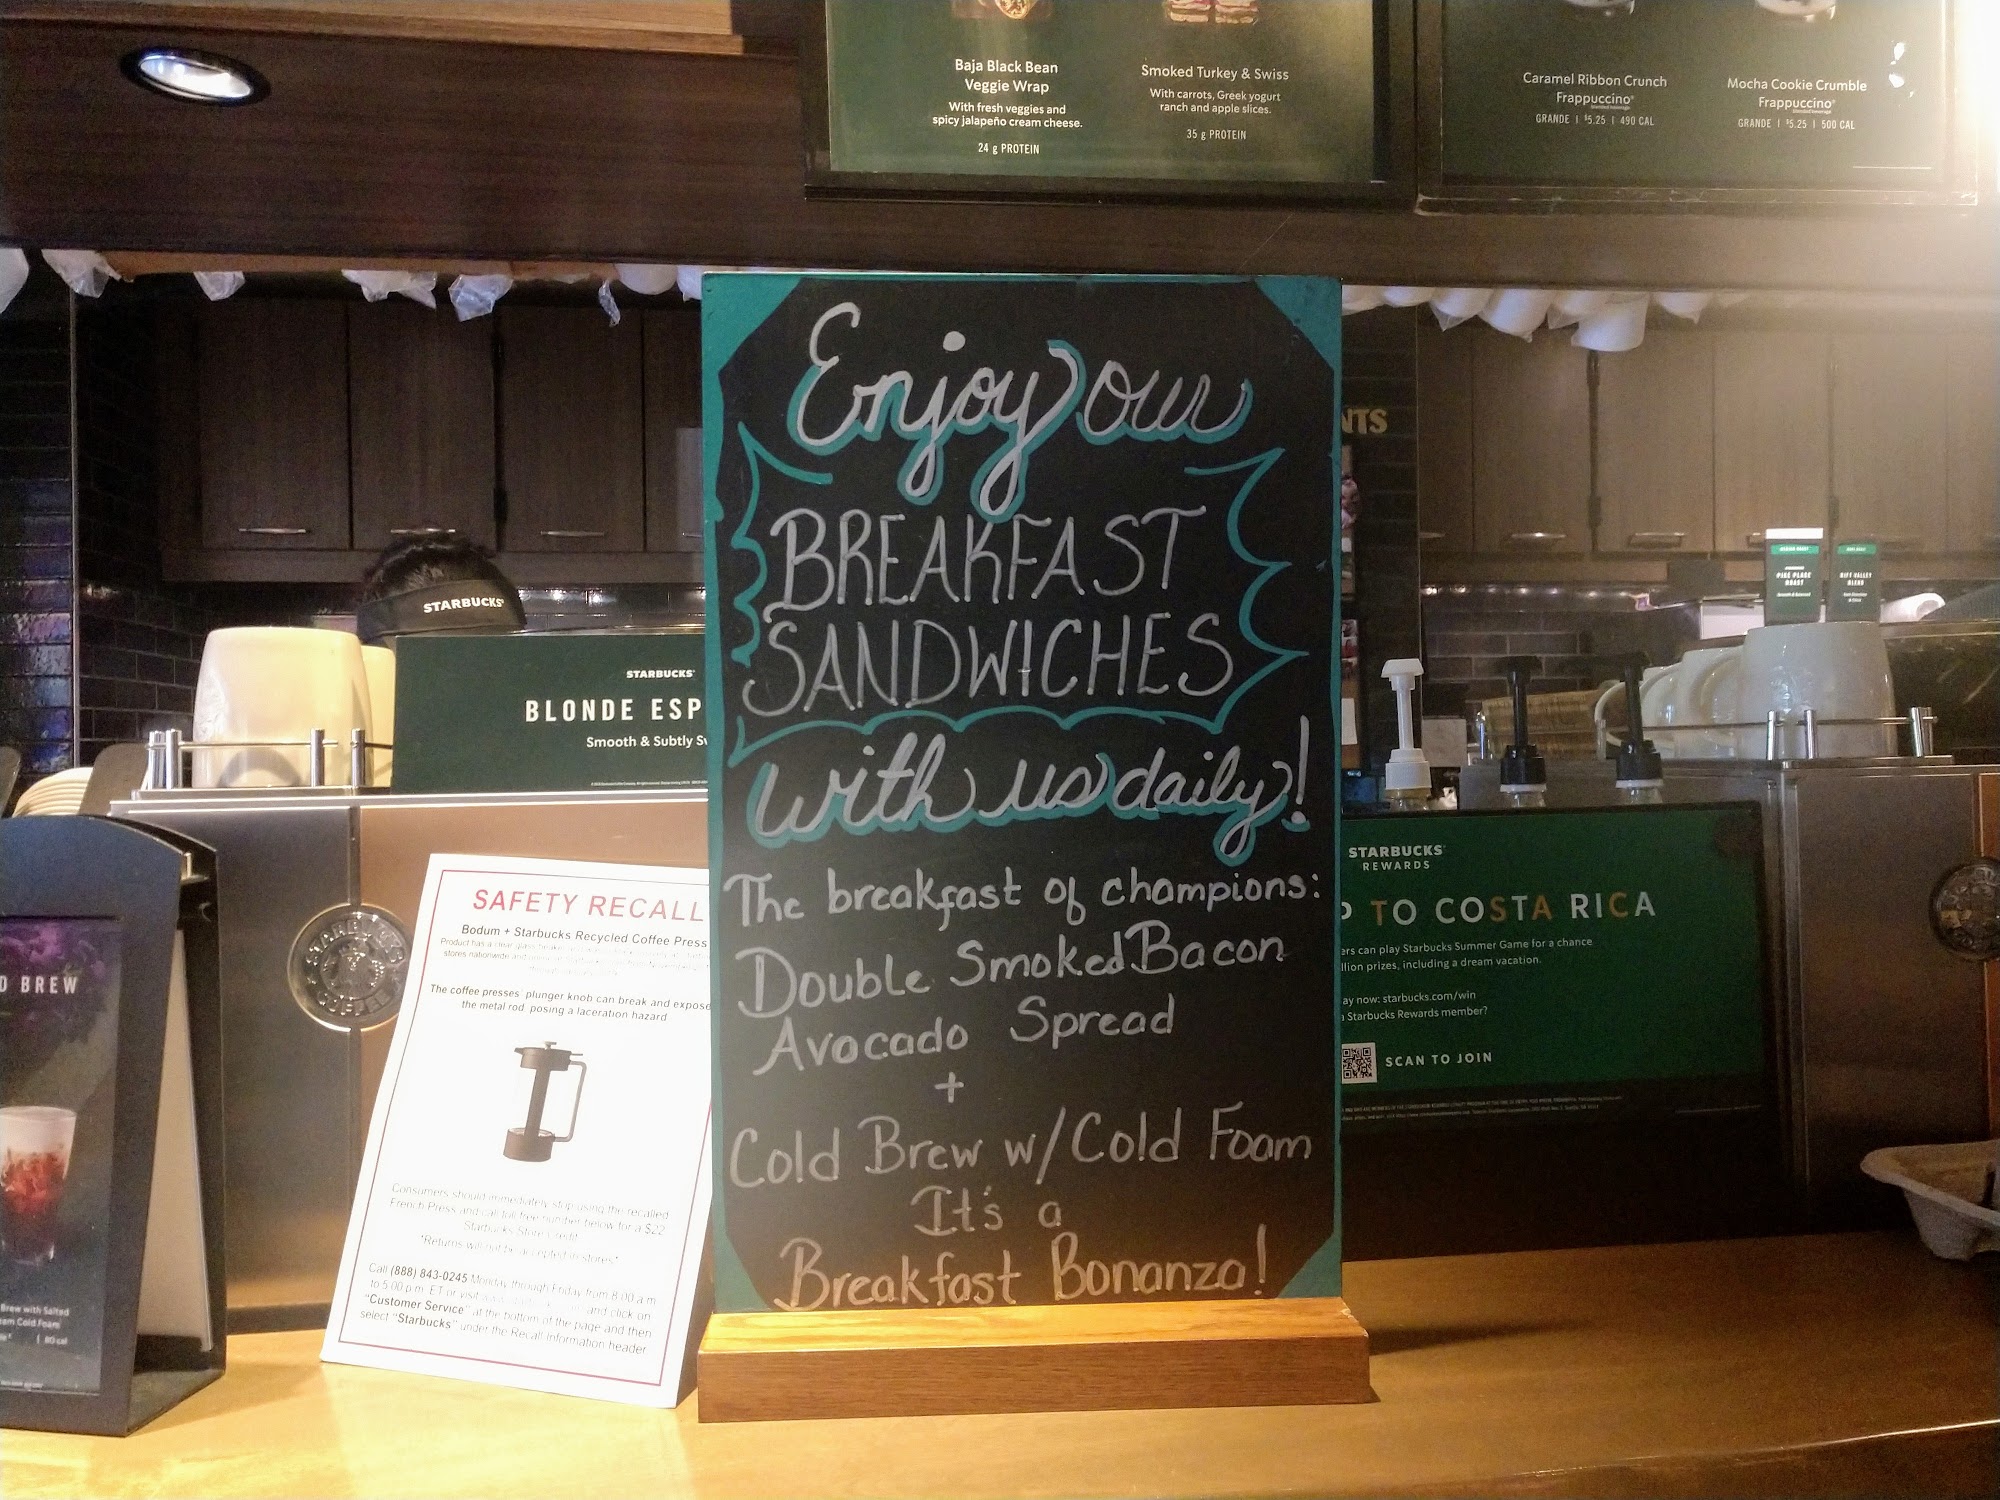 Baja Black Bean
Veggie Wrap
With fresh veggies and
spicy jalapeño cream cheese.
24 g PROTEIN
Smoked Turkey & Swiss
With carrots, Greek yogurt
ranch and apple slices.
35 g PROTEIN
Caramel Ribbon Crunch
Frappuccino®
GRANDE | $5.25 | 490 CAL
Mocha Cookie Crumble
Frappuccino®
GRANDE | $5.25 | 500 CAL
Enjoy our
BREAKFAST
SANDWICHES
with us daily!
The breakfast of champions:
Double Smoked Bacon
Avocado Spread
+
Cold Brew w/Cold Foam
It's a
Breakfast Bonanza!
NTS
STARBUCKS®
STARBUCKS®
BLONDE ESP
Smooth & Subtly Sw
PIKE PLACE
ROAST
RIFT VALLEY
BLEND
STARBUCKS
COFFEE
SAFETY RECALL
Bodum + Starbucks Recycled Coffee Press
stores nationwide and
The coffee presses' plunger knob can break and expose
the metal rod, posing a laceration hazard
Consumers should immediately stop using the recalled
French Press and call toll free number below for a $22
Starbucks Store Credit
*Returns will not be accepted in stores*
Call (888) 843-0245 Monday through Friday from 8:00 a.m.
to 5:00 p.m. ET or visit and click on
"Customer Service" at the bottom of the page and then
select "Starbucks" under the Recall Information header
D BREW
Brew with Salted
am Cold Foam
80 cal
STARBUCKS®
REWARDS
P TO COSTA RICA
ers can play Starbucks Summer Game for a chance
llion prizes, including a dream vacation.
ay now: starbucks.com/win
a Starbucks Rewards member?
SCAN TO JOIN